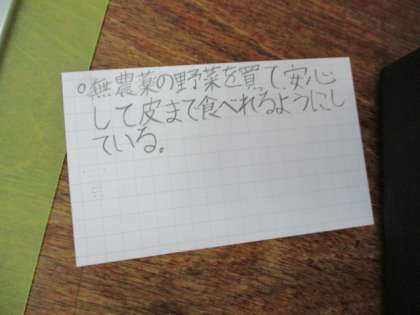 ○無農薬の野菜を買って、安心
して皮まで食べれるようにし
ている。